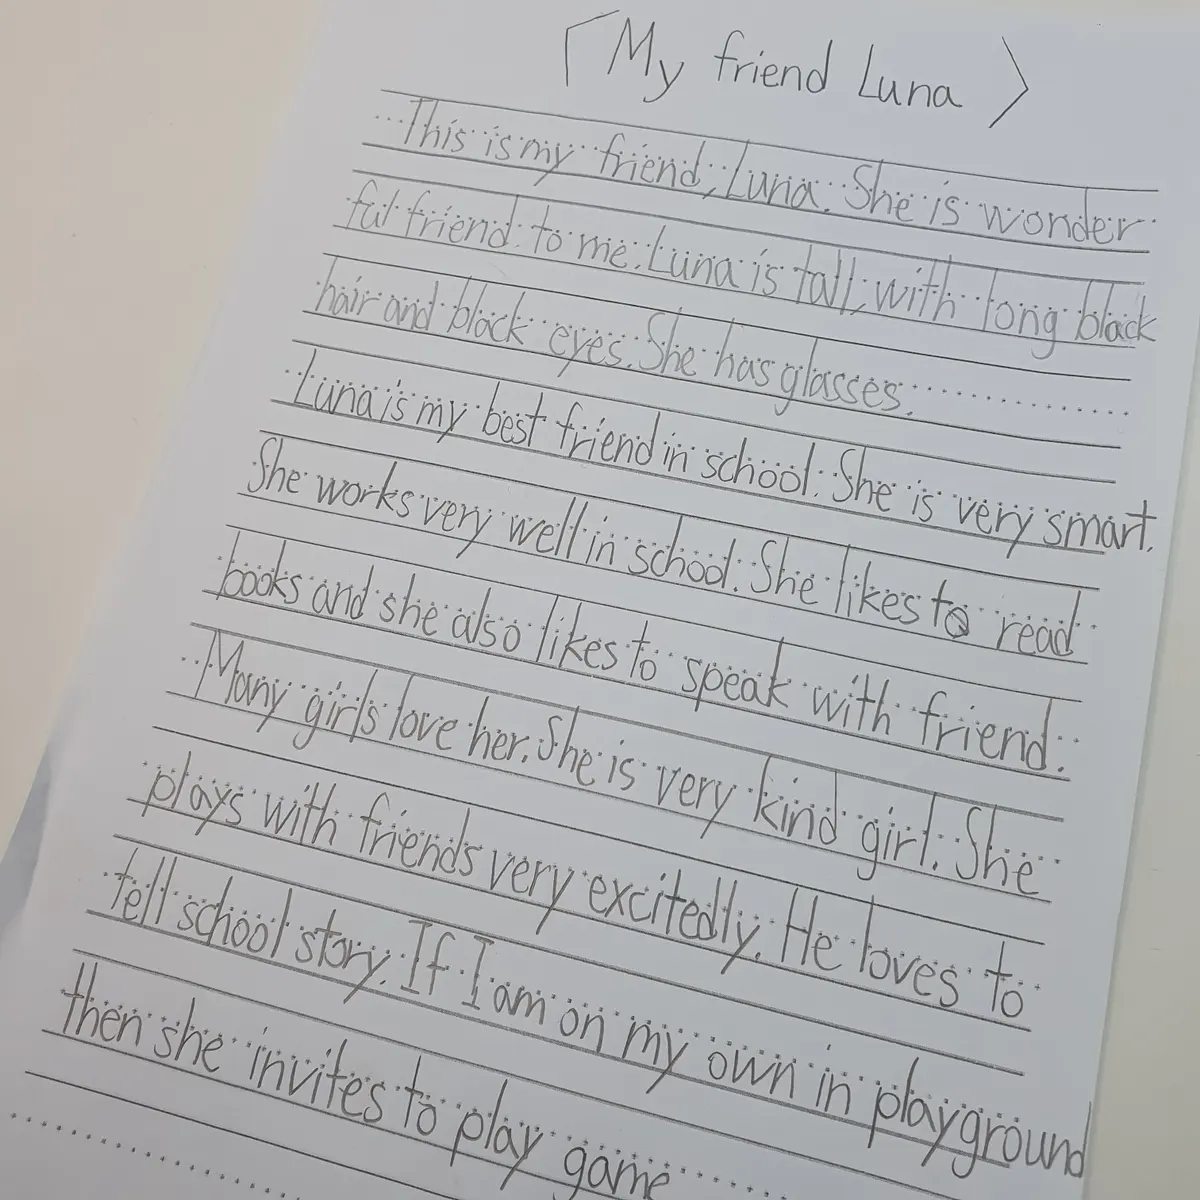 「My friend Luna 〉
This is my friend, Luna. She is wonder
ful friend to me. Luna is tall, with long black
hair and black eyes. She has glasses.
Luna is my best friend in school. She is very smart.
She works very well in school. She likes to read
books and she also likes to speak with friend.
Many girls love her. She is very kind girl. She
plays with friends very excitedly. He loves to
tell school story. If I am on my own in playground
then she invites to play game